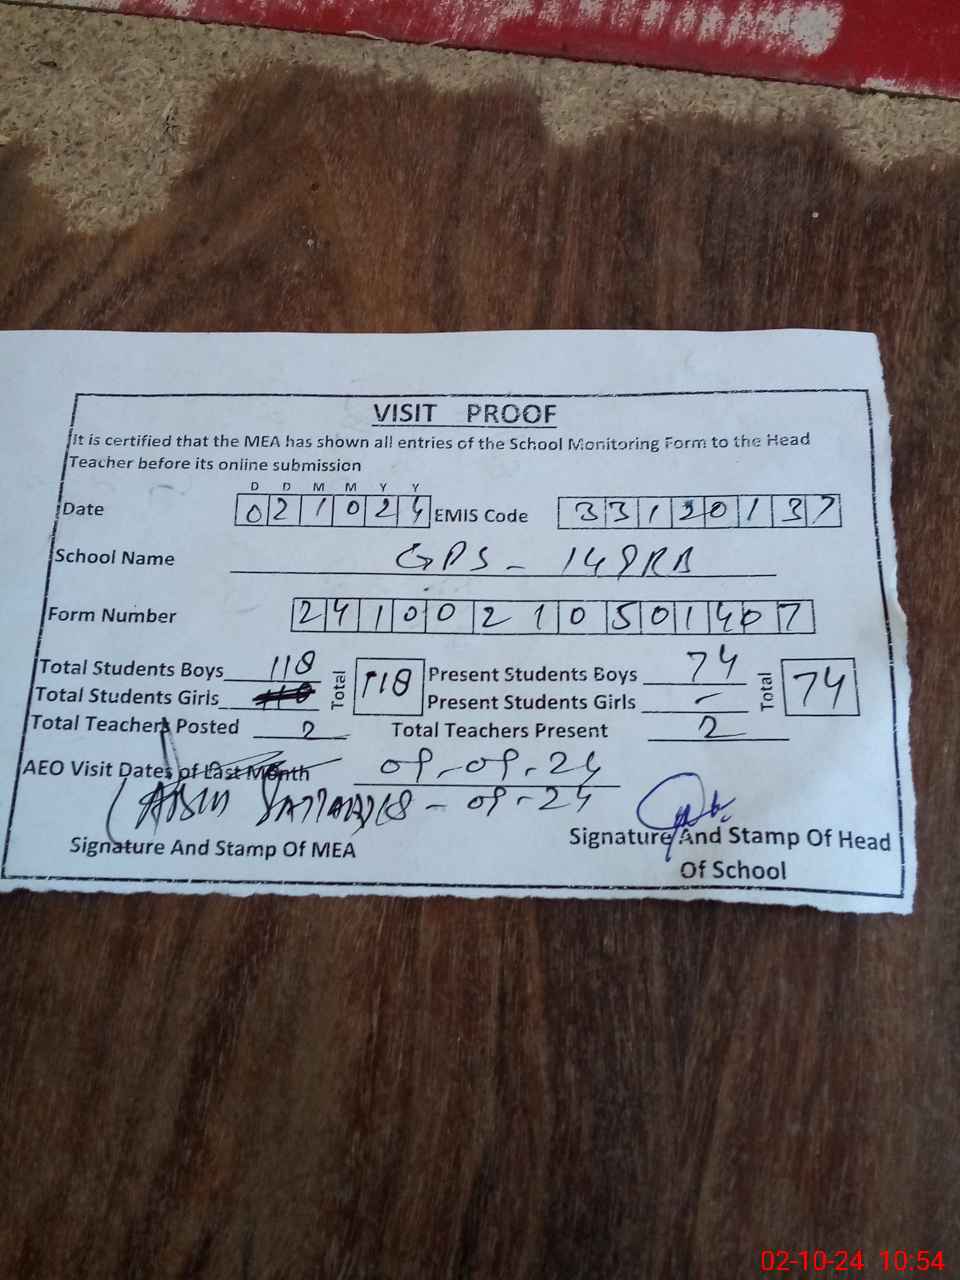 VISIT PROOF
It is certified that the MEA has shown all entries of the School Monitoring Form to the Head
Teacher before its online submission
D D M M Y Y
Date 021024 EMIS Code 33120137
School Name GPS - 148RB
Form Number 24100210501407
Total Students Boys 118 Total 118 Present Students Boys 74 Total 74
Total Students Girls Present Students Girls -
Total Teachers Posted 2 Total Teachers Present 2
AEO Visit Dates of Last Month 09-09-24
- 09-24
Signature And Stamp Of MEA Signature And Stamp Of Head
Of School
02-10-24 10:54